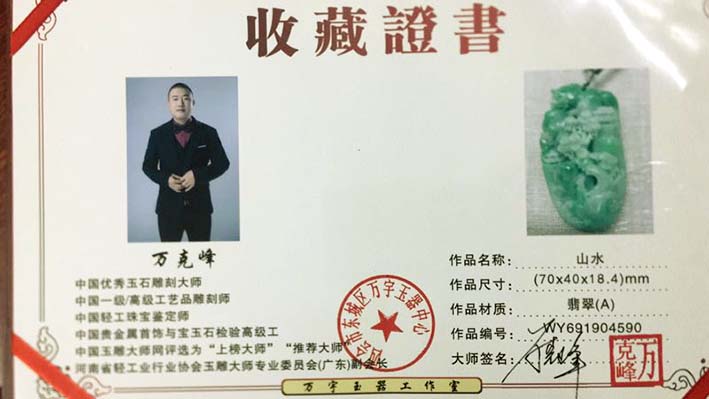 收藏證書
万克峰
中国优秀玉石雕刻大师
中国一级/高级工艺品雕刻师
中国轻工珠宝鉴定师
中国贵金属首饰与宝玉石检验高级工
中国玉雕大师网评选为“上榜大师”“推荐大师”
河南省轻工业行业协会玉雕大师专业委员会(广东)副会长
作品名称: 山水
作品尺寸: (70x40x18.4)mm
作品材质: 翡翠(A)
作品编号: WY691904590
大师签名: 万克峰
四会市东城区万字玉器中心
万克峰
万字玉器工作室